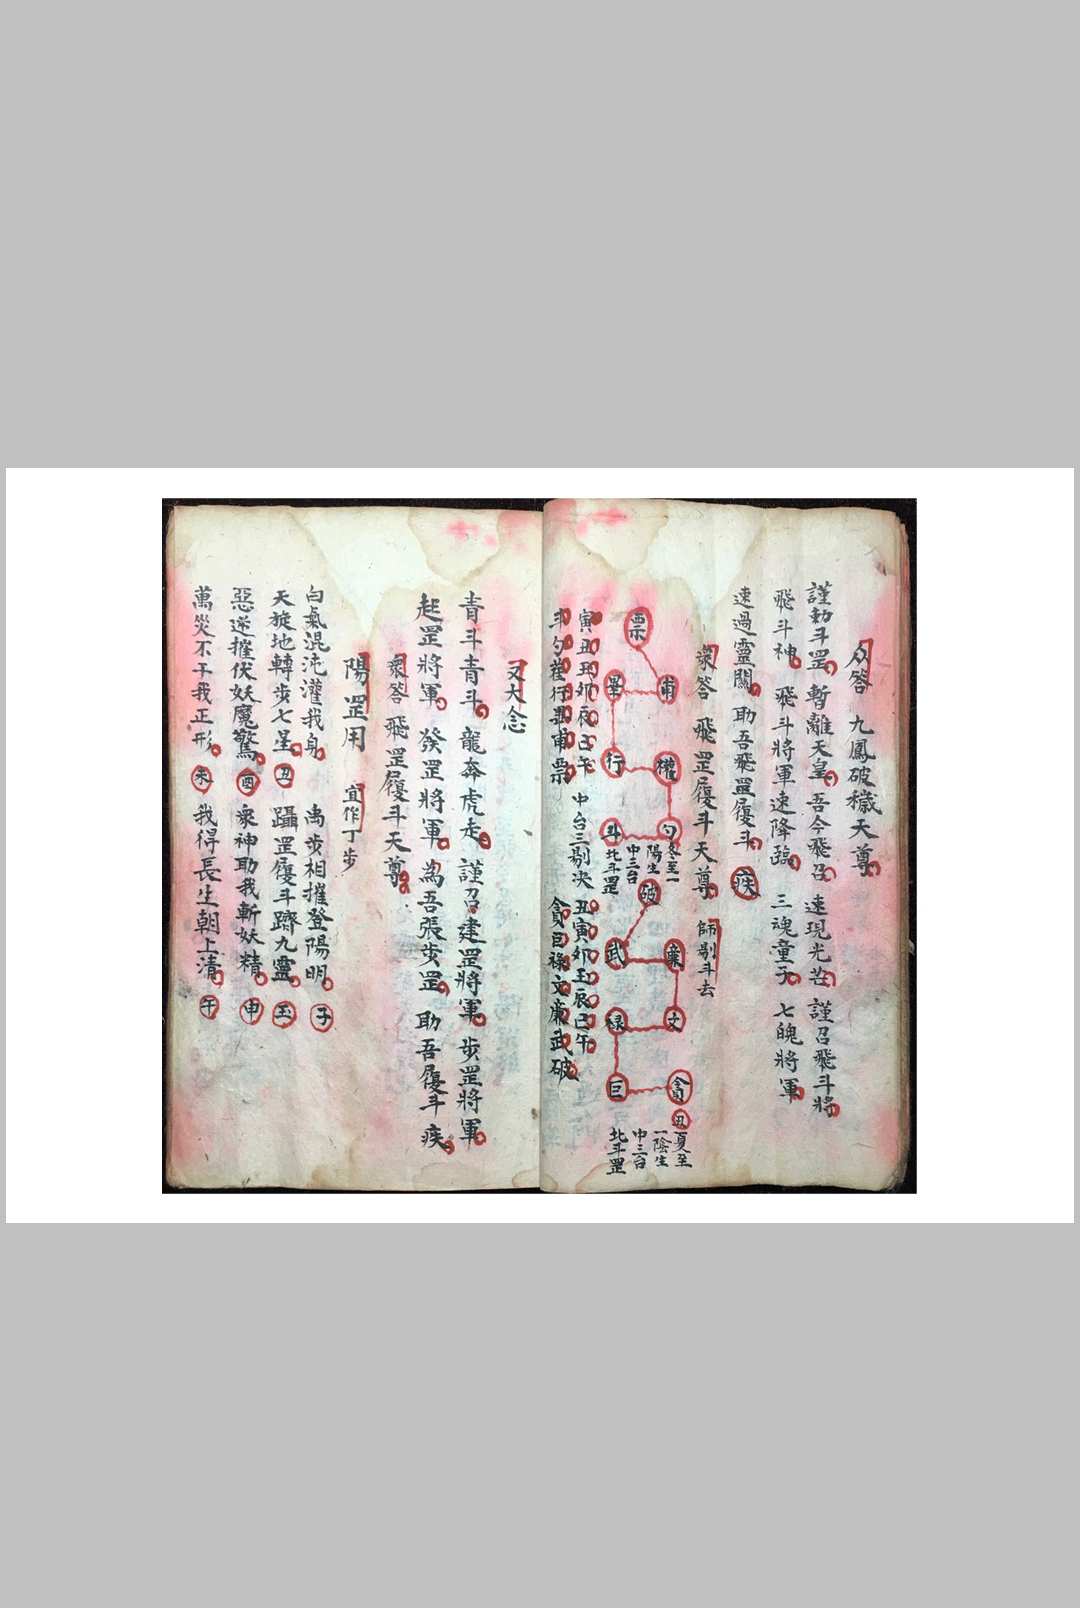 众答 九鳳破穢天尊
謹勅斗罡 暫離天皇 吾今飛召 速現光芒 謹召飛斗將
飛斗神 飛斗將軍速降臨 三魂童子 七魄將軍
速過靈關 助吾飛罡履斗 疾
衆答 飛罡履斗天尊 師剔斗去
票
甫
畢
行
權
勺
斗
冬至一
陽生
中三台
北斗罡
破
武
廉
文
禄
巨
貪
丑
夏至
一陰生
中三台
北斗罡
寅丑丑卯辰巳午 中台三剔决 丑寅卯玉辰巳午
斗勺行畢甫票 貪巨祿文廉武破
又大念
青斗青斗 龍奔虎走 謹召建罡將軍 步罡將軍
起罡將軍 發罡將軍 為吾張步罡 助吾履斗 疾
衆答 飛罡履斗天尊
陽罡用 宜作丁步
白氣混沌灌我身 禹步相摧登陽明 子
天旋地轉步七星 丑 躡罡履斗躋九靈 玉
惡逆摧伏妖魔驚 酉 衆神助我斬妖精 申
萬災不干我正形 未 我得長生朝上清 午